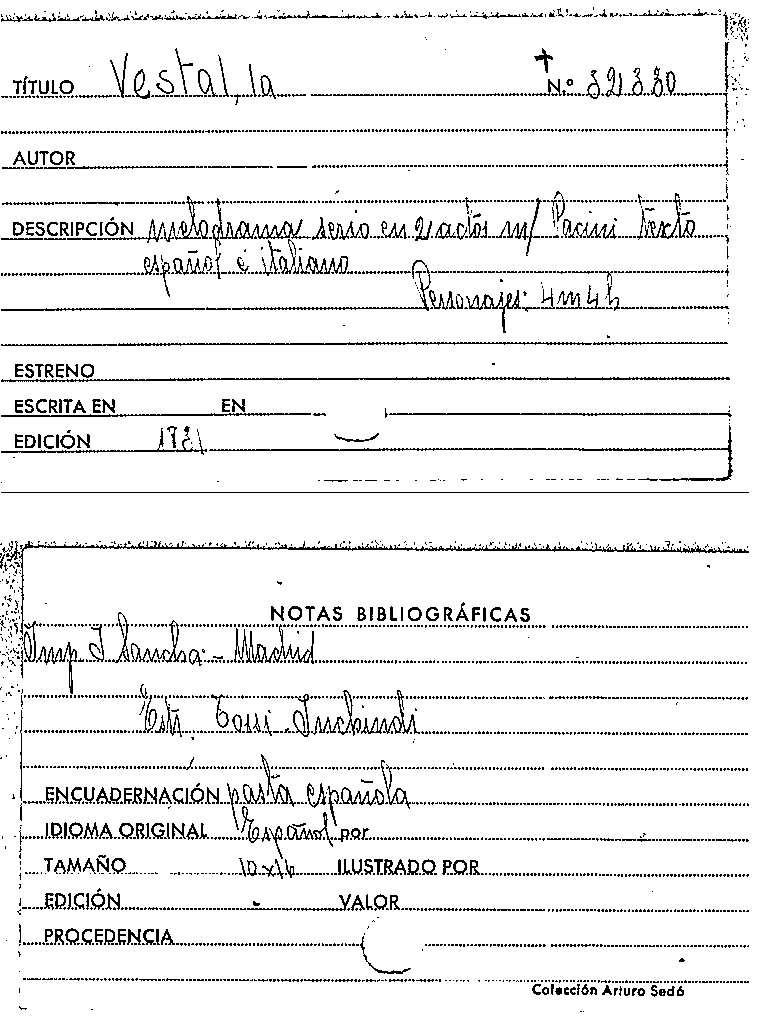 TÍTULO Vestal, la N.º 32330
AUTOR
DESCRIPCIÓN melodrama serio en 2 actos m/ Pacini texto
español é italiano
Personajes: 4m 4h
ESTRENO
ESCRITA EN EN
EDICIÓN
NOTAS BIBLIOGRÁFICAS
Imp. I Sancha - Madrid
Est. Tossi - Inchindi
ENCUADERNACIÓN pasta española
IDIOMA ORIGINAL Español por
TAMAÑO 10x16 ILUSTRADO POR
EDICIÓN VALOR
PROCEDENCIA
Colección Arturo Sedó